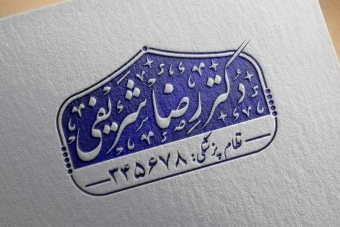 دکتر رضا شریفی
نظام پزشکی: ۳۴۵۶۷۸